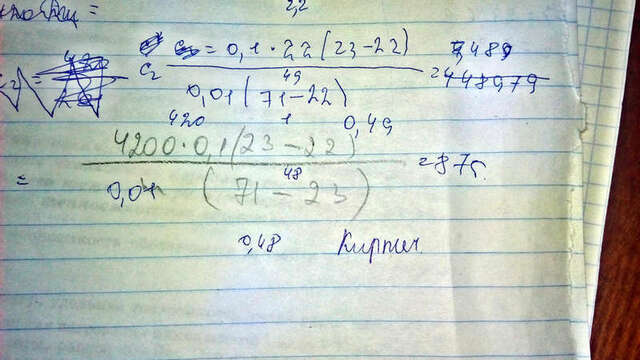 2,2
C₂ = 0,1 · 22 (23 - 22) / 0,01 (71 - 22) = 4,489
49
448979
420 1 0,49
= 4200 · 0,1 (23 - 22) / 0,01 (71 - 23) = 875
48
0,48 Кирпич.